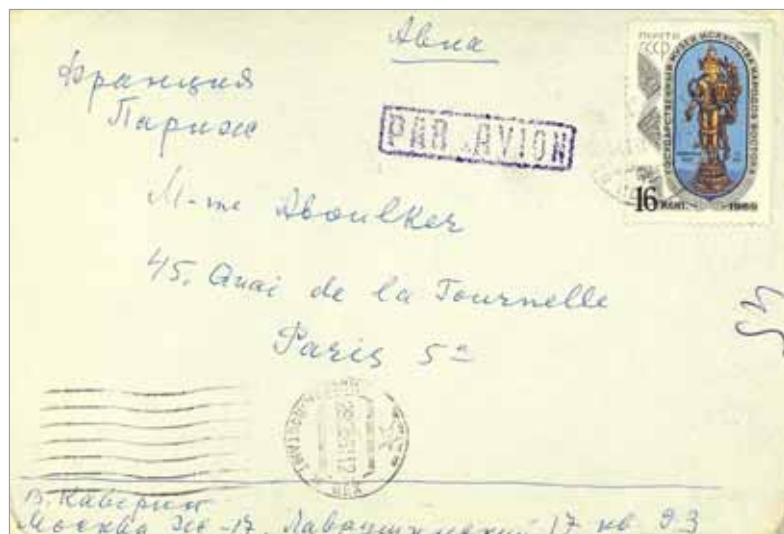 Авиа
Франция
Париж
PAR AVION
ПОЧТА
СССР
ГОСУДАРСТВЕННЫЙ МУЗЕЙ ИСКУССТВА НАРОДОВ ВОСТОКА
16 КОП. 1969
M-me Aboulker
45, Quai de la Tournelle
Paris 5e
53
В. Каверин
Москва Ж-17, Лаврушинский 17 кв 93